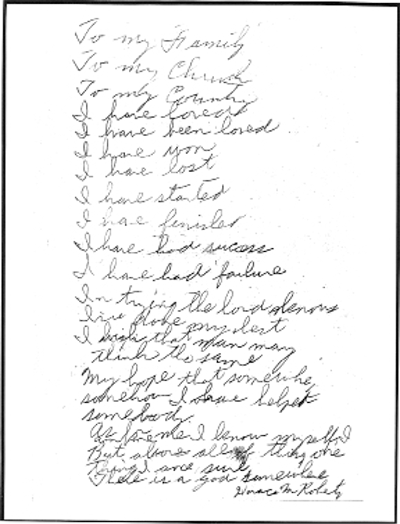 To my Family
To my Church
To my Country
I have loved
I have been loved
I have won
I have lost
I have started
I have finished
I have had success
I have had failure
In trying the lord knows
I've done my best
I that man may
think the same
My hope that somewhere
somehow I have helped
somebody.
I know myself I
But above all thing one
thing I am sure
There is a god somewhere
Horace M